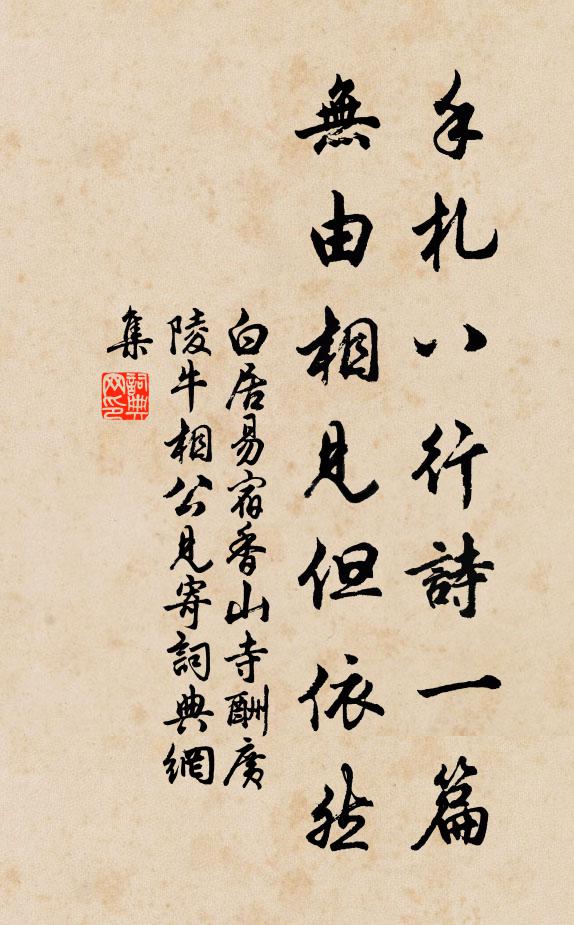 手札八行詩一篇
無由相見但依然
白居易宿香山寺酬廣
陵牛相公見寄詞典網
集
詞典
网印